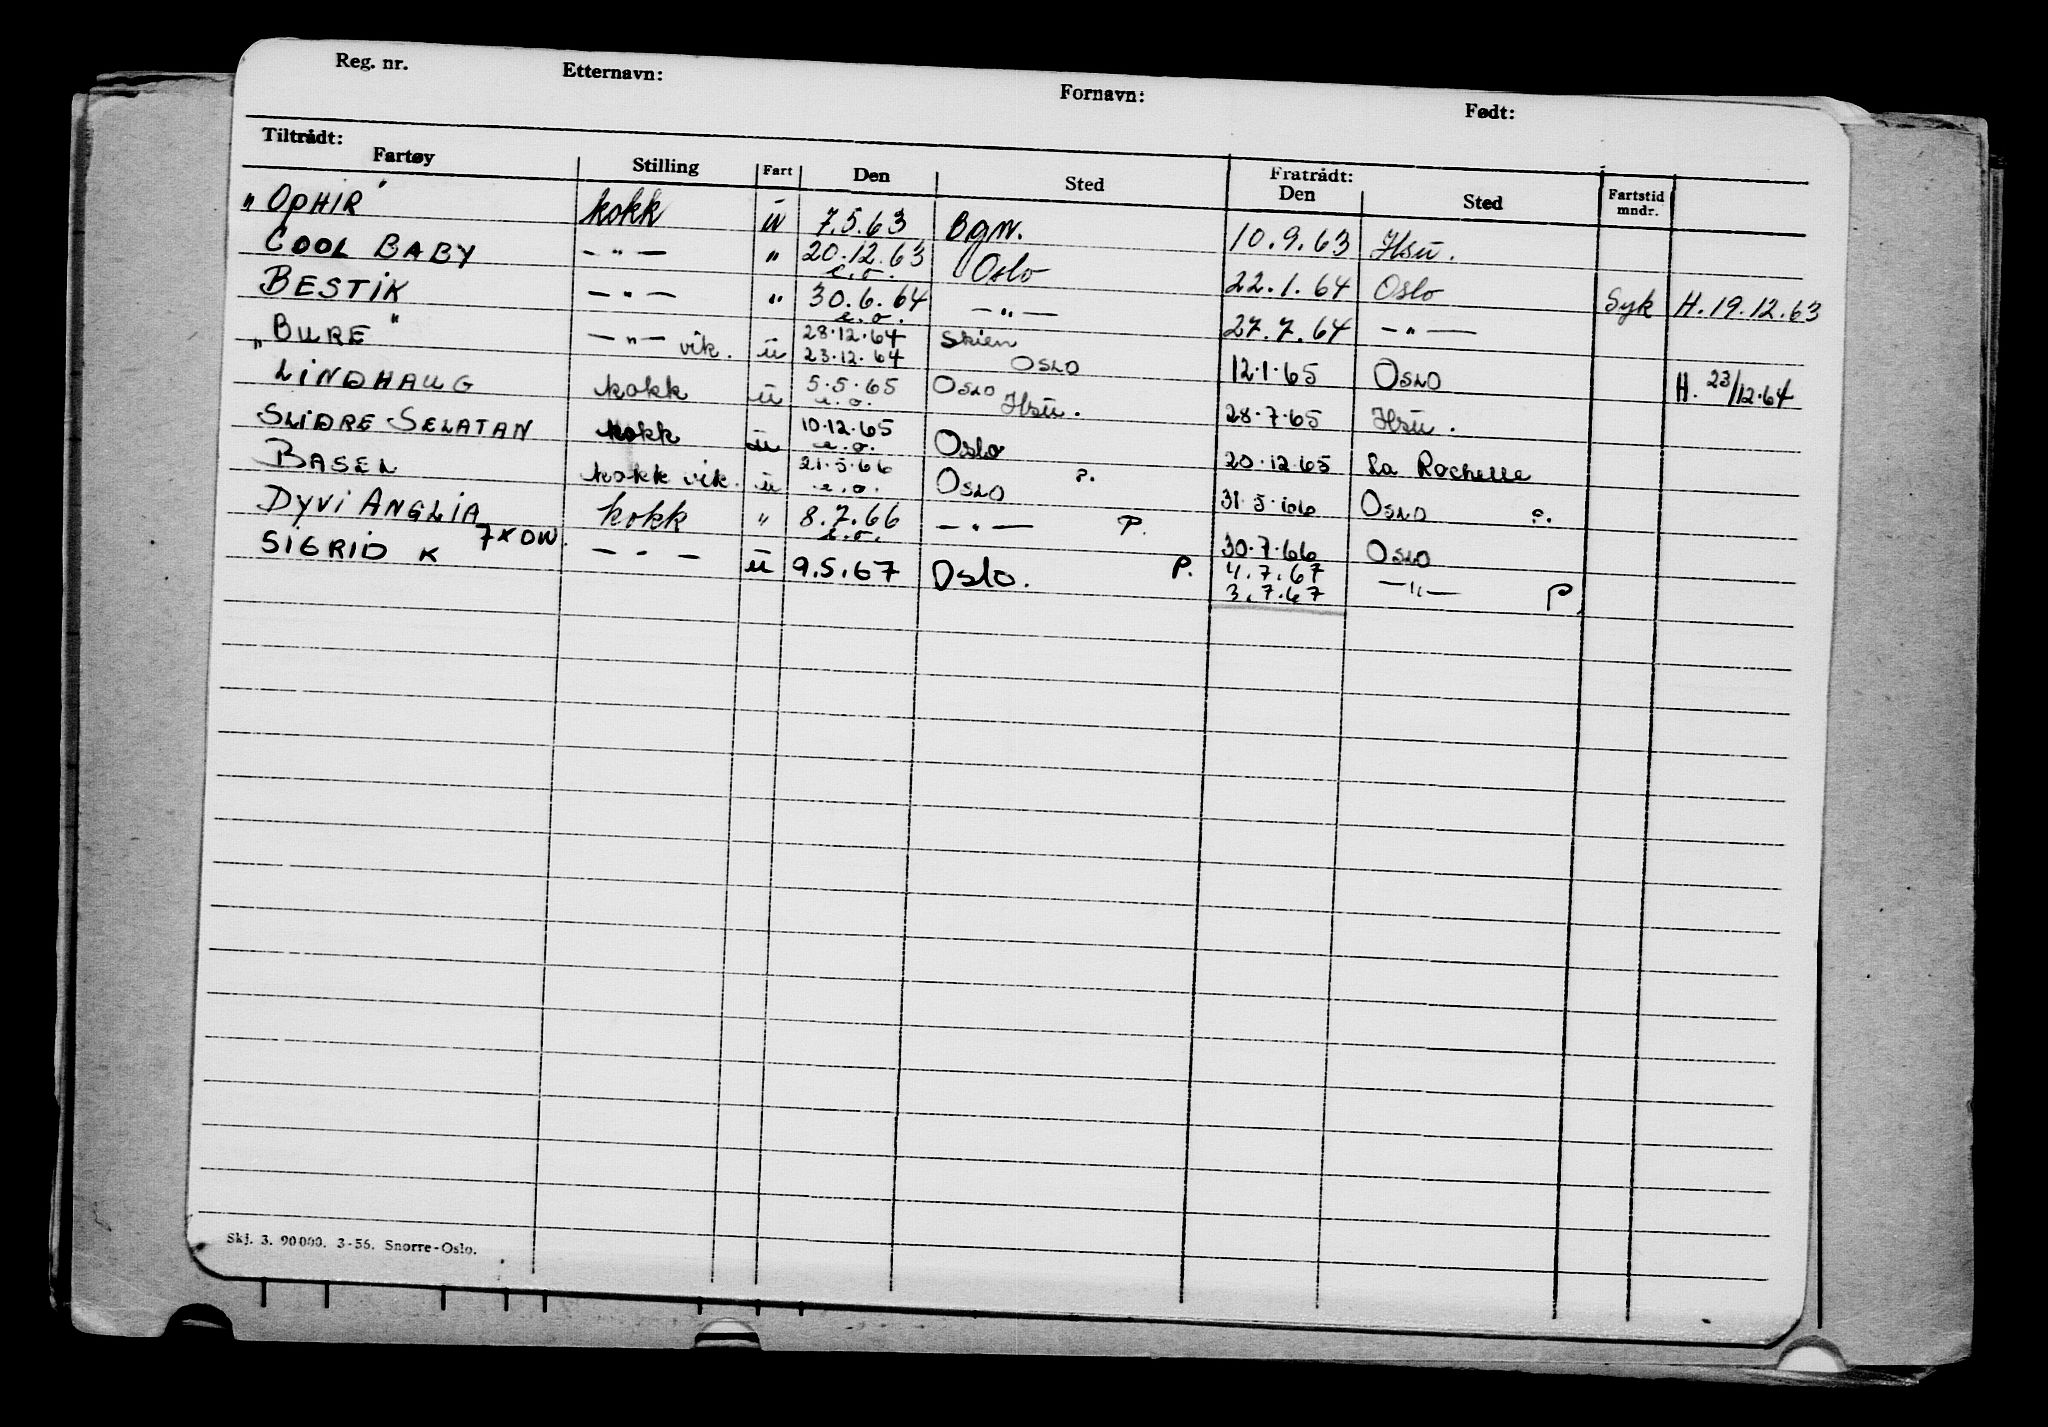 Reg. nr. Etternavn: Fornavn: Født:
Tiltrådt: Fratrådt:
Fartøy Stilling Fart Den Sted Den Sted Fartstid mndr.
"OPHIR" kokk ü 7.5.63 Bgn. 10.9.63 Hsü.
COOL BABY — " — " 20.12.63 e.o. Oslo 22.1.64 Oslo Syk H. 19.12.63
BESTIK — " — " 30.6.64 e.o. — " — 27.7.64 — " —
"BURE" — " — vik. ü 28.12.64 Skien
23.12.64 OSLO 12.1.65 OSLO H. 23/12.64
LINDHAUG kokk ü 5.5.65 e.o. OSLO Hsü. 28.7.65 Hsü.
SLIDRE-SELATAN kokk ü 10.12.65 e.o. Oslo 20.12.65 La Rochelle
BASEL kokk vik. ü 21.5.66 e.o. OSLO P. 31.5.66 OSLO P.
DYVI ANGLIA kokk " 8.7.66 e.o. — " — P. 30.7.66 OSLO
7XOW.
SIGRID K — " — ü 9.5.67 Oslo. P. 4.7.67 — " — P.
3.7.67
Skj. 3. 90000. 3-56. Snorre-Oslo.